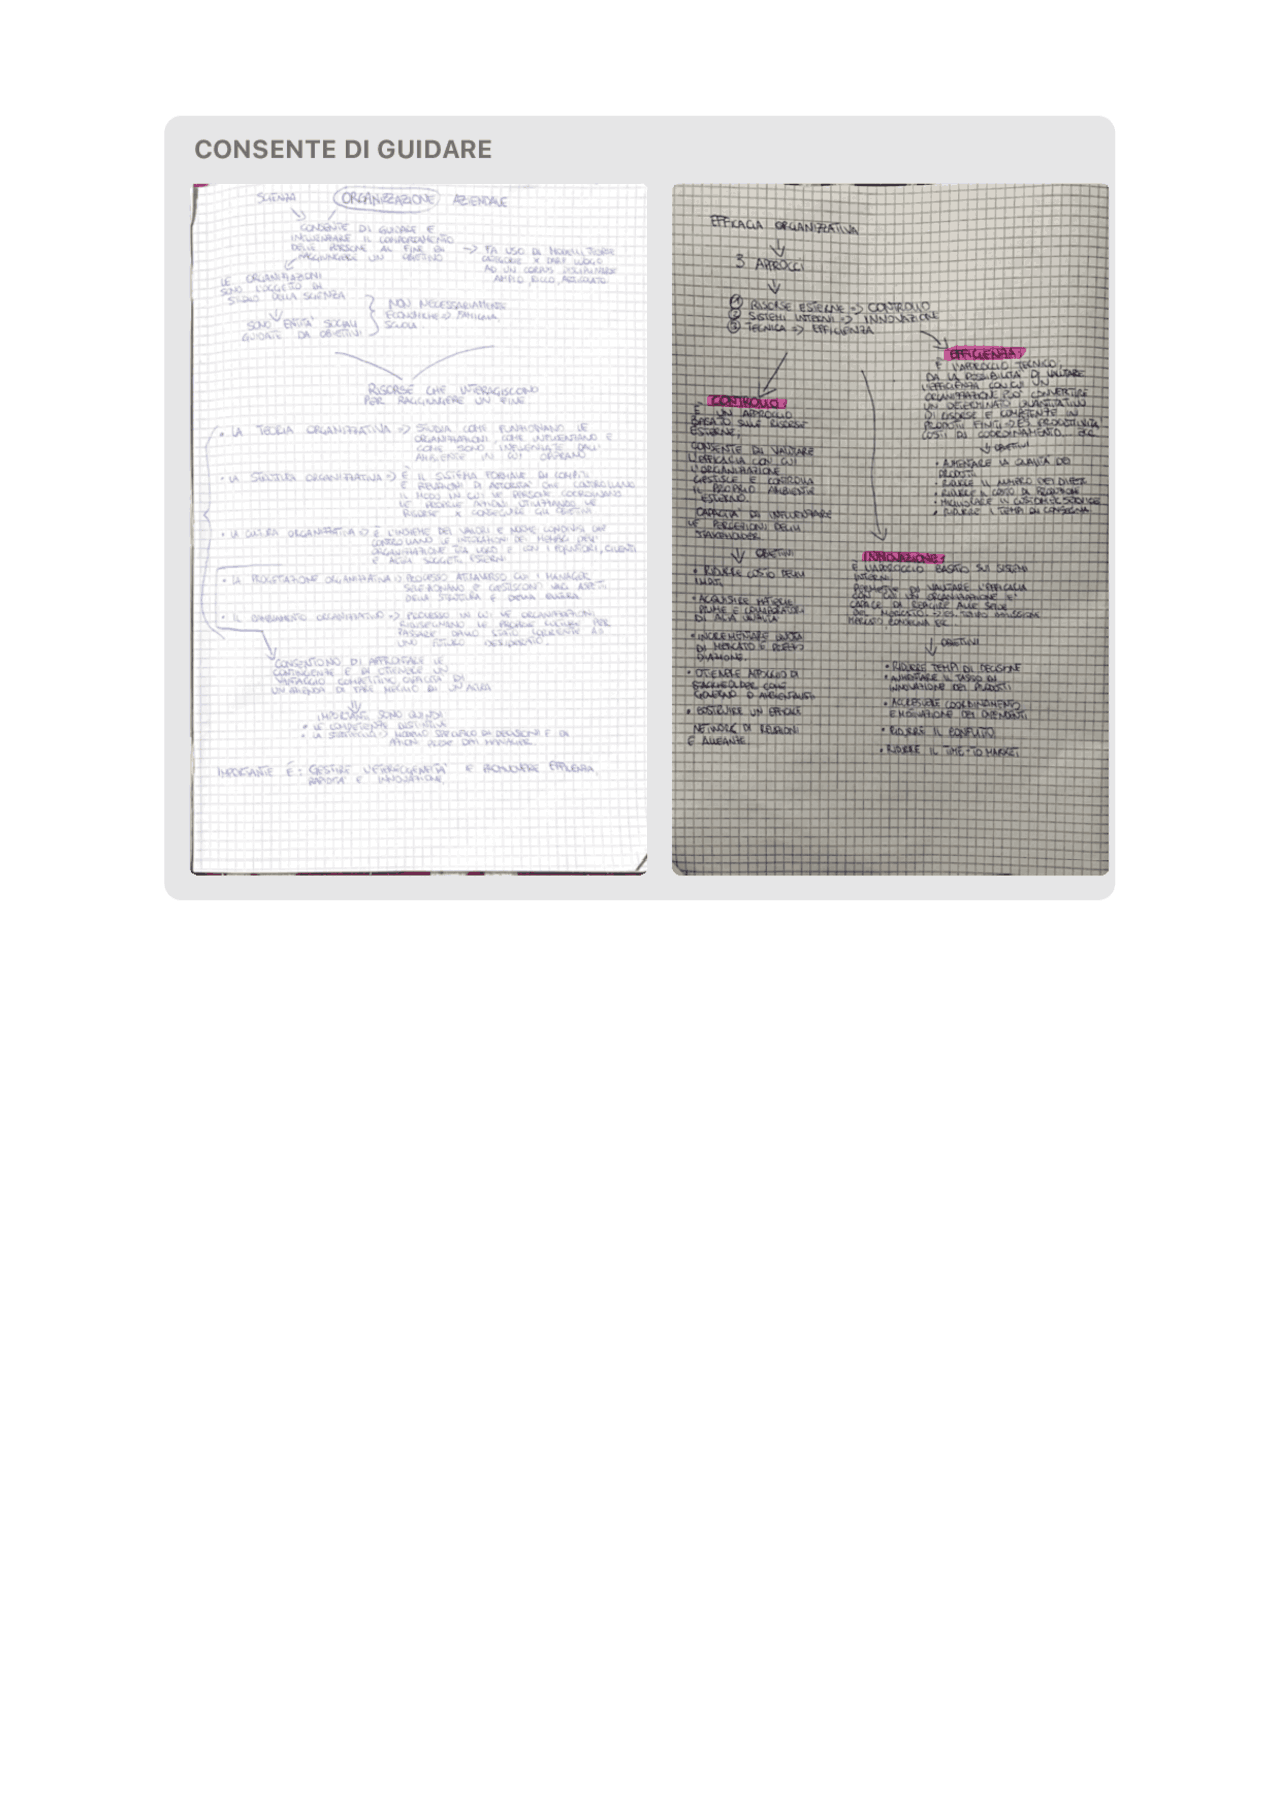 CONSENTE DI GUIDARE
SCIENZA ORGANIZZAZIONE AZIENDALE
CONSENTE DI GUIDARE E
INFLUENZARE IL COMPORTAMENTO
DELLE PERSONE AL FINE DI
RAGGIUNGERE UN OBIETTIVO
=> FA USO DI MODELLI, TEORIE
CATEGORIE X DARE LUOGO
AD UN CORPUS DISCIPLINARE
AMPIO, RICCO, ARTICOLATO.
LE ORGANIZZAZIONI
SONO L'OGGETTO DI
STUDIO DELLA SCIENZA
SONO ENTITA' SOCIALI
GUIDATE DA OBIETTIVI
NON NECESSARIAMENTE
ECONOMICHE => FAMIGLIA,
SCUOLA.
RISORSE CHE INTERAGISCONO
PER RAGGIUNGERE UN FINE
• LA TEORIA ORGANIZZATIVA => STUDIA COME FUNZIONANO LE
ORGANIZZAZIONI, COME INFLUENZANO E
COME SONO INFLUENZATE DALL'
AMBIENTE IN CUI OPERANO
• LA STRUTTURA ORGANIZZATIVA => È IL SISTEMA FORMALE DI COMPITI
E RELAZIONI DI AUTORITA' CHE CONTROLLANO
IL MODO IN CUI LE PERSONE COORDINANO
LE PROPRIE AZIONI UTILIZZANDO LE
RISORSE X CONSEGUIRE GLI OBIETTIVI
• LA CULTURA ORGANIZZATIVA => È L'INSIEME DEI VALORI E NORME CONDIVISI CHE
CONTROLLANO LE INTERAZIONI DEI MEMBRI DELL'
ORGANIZZAZIONE TRA LORO E CON I FORNITORI, CLIENTI
E ALTRI SOGGETTI ESTERNI
• LA PROGETTAZIONE ORGANIZZATIVA => PROCESSO ATTRAVERSO CUI I MANAGER
SELEZIONANO E GESTISCONO VARI ASPETTI
DELLA STRUTTURA E DELLA CULTURA
• IL CAMBIAMENTO ORGANIZZATIVO => PROCESSO IN CUI LE ORGANIZZAZIONI
RIPROGETTANO LE PROPRIE STRUTTURE PER
PASSARE DALLO STATO CORRENTE AD
UNO FUTURO DESIDERATO.
CONSENTONO DI AFFRONTARE LE
CONTINGENZE E DI OTTENERE UN
VANTAGGIO COMPETITIVO: CAPACITA' DI
UN'AZIENDA DI FARE MEGLIO DI UN'ALTRA
IMPORTANTI SONO QUINDI
• LE COMPETENZE DISTINTIVE
• LA STRATEGIA => MODELLO SPECIFICO DI DECISIONI E DI
AZIONI DEI MANAGER.
IMPORTANTE È: GESTIRE L'ETEROGENEITA' E PROMUOVERE EFFICIENZA,
RAPIDITA' E INNOVAZIONE.
EFFICACIA ORGANIZZATIVA
3 APPROCCI
① RISORSE ESTERNE => CONTROLLO
② SISTEMI INTERNI => INNOVAZIONE
③ TECNICA => EFFICIENZA
EFFICIENZA:
È L'APPROCCIO TECNICO
DA LA POSSIBILITA' DI VALUTARE
L'EFFICIENZA CON CUI UN
ORGANIZZAZIONE PUO' CONVERTIRE
UN DETERMINATO QUANTITATIVO
DI RISORSE E COMPETENZE IN
PRODOTTI FINITI => ES. PRODUTTIVITA'
COSTI DI COORDINAMENTO, ECC
OBIETTIVI
• AUMENTARE LA QUALITA DEI
PRODOTTI
• RIDURRE IL NUMERO DEI DIFETTI
• RIDURRE IL COSTO DI PRODUZIONE
• MIGLIORARE IL CUSTOMER SERVICE
• RIDURRE I TEMPI DI CONSEGNA
CONTROLLO:
È UN APPROCCIO
BASATO SULLE RISORSE
ESTERNE,
CONSENTE DI VALUTARE
L'EFFICACIA CON CUI
L'ORGANIZZAZIONE
GESTISCE E CONTROLLA
IL PROPRIO AMBIENTE
ESTERNO.
CAPACITA' DI INFLUENZARE
LE PERCEZIONI DEGLI
STAKEHOLDER
OBIETTIVI
• RIDURRE COSTO DEGLI
INPUT.
• ACQUISIRE MATERIE
PRIME E COLLABORATORI
DI ALTA QUALITA'
• INCREMENTARE QUOTA
DI MERCATO E PREZZO
D'AZIONE.
• OTTENERE APPOGGIO DI
STAKEHOLDER COME
GOVERNO O AMBIENTALISTI
• COSTRUIRE UN EFFICACE
NETWORK DI RELAZIONI
E ALLEANZE.
INNOVAZIONE:
È L'APPROCCIO BASATO SUI SISTEMI
INTERNI
PERMETTE DI VALUTARE L'EFFICACIA
CON CUI UN' ORGANIZZAZIONE E'
CAPACE DI REAGIRE ALLE SFIDE
DEL MERCATO.
OBIETTIVI
• RIDURRE TEMPI DI DECISIONE
• AUMENTARE IL TASSO DI
INNOVAZIONE DEI PRODOTTI
• ACCRESCERE COORDINAMENTO
E MOTIVAZIONE DEI DIPENDENTI
• RIDURRE IL CONFLITTO
• RIDURRE IL TIME-TO MARKET